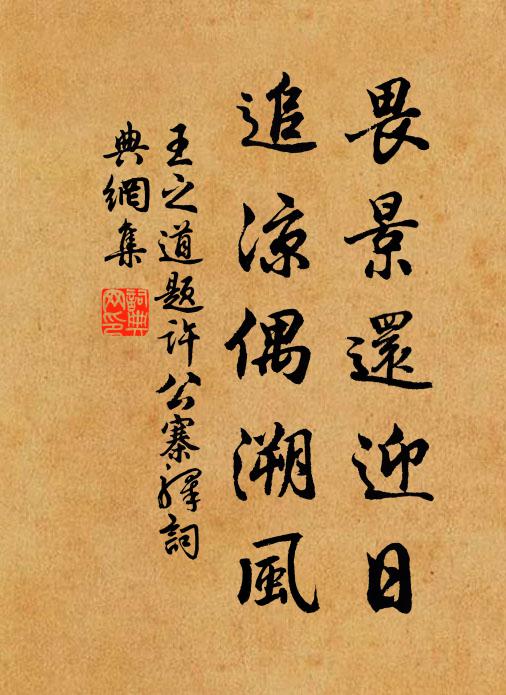 畏景還迎日
追涼偶溯風
王之道題許公寨驛詞
典網集
詞典
網印